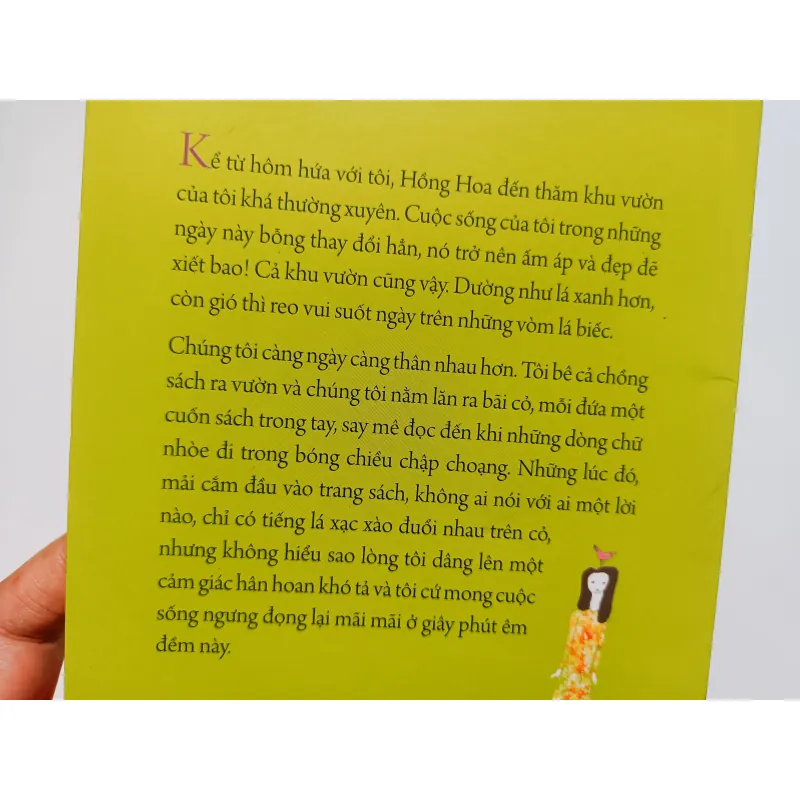 Kể từ hôm hứa với tôi, Hồng Hoa đến thăm khu vườn
của tôi khá thường xuyên. Cuộc sống của tôi trong những
ngày này bỗng thay đổi hẳn, nó trở nên ấm áp và đẹp đẽ
xiết bao! Cả khu vườn cũng vậy. Dường như lá xanh hơn,
còn gió thì reo vui suốt ngày trên những vòm lá biếc.
Chúng tôi càng ngày càng thân nhau hơn. Tôi bê cả chồng
sách ra vườn và chúng tôi nằm lăn ra bãi cỏ, mỗi đứa một
cuốn sách trong tay, say mê đọc đến khi những dòng chữ
nhòe đi trong bóng chiều chập choạng. Những lúc đó,
mải cắm đầu vào trang sách, không ai nói với ai một lời
nào, chỉ có tiếng lá xạc xào đuổi nhau trên cỏ,
nhưng không hiểu sao lòng tôi dâng lên một
cảm giác hân hoan khó tả và tôi cứ mong cuộc
sống ngưng đọng lại mãi mãi ở giây phút êm
đềm này.